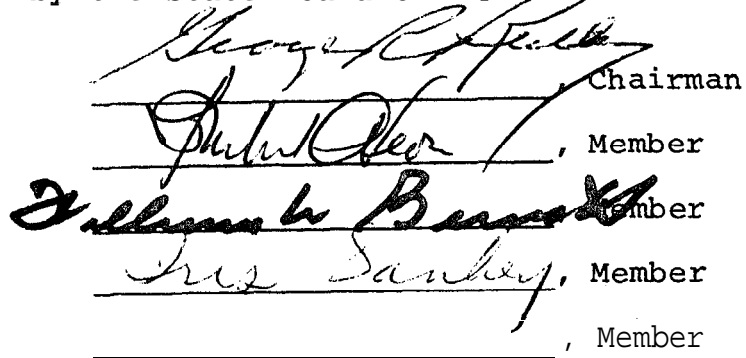 George R. Reilly, Chairman
, Member
William W. Bennett, Member
Iris Sankey, Member
, Member